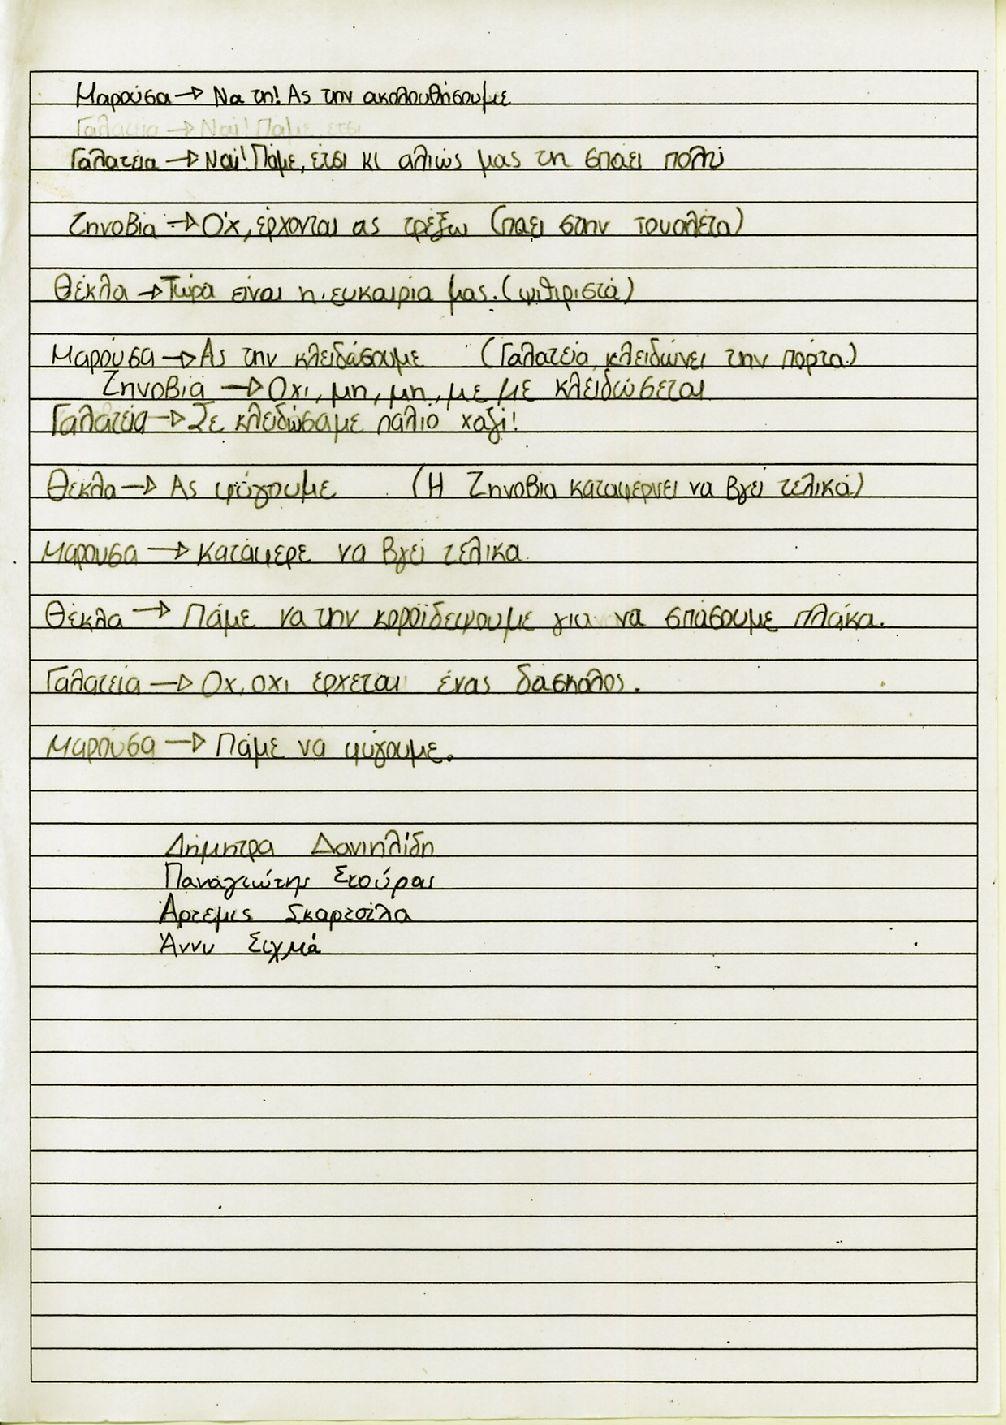 Μαρούσα → Να τη! Ας την ακολουθήσουμε
Γαλατεια → Ναι! Πάμε ετσι
Γαλατεία → Ναι! Πάμε, έτσι κι αλιώς μας τη σπάει πολύ
Ζηνοβία → Όχ, έρχονται ας τρέξω (παει στην τουαλέτα)
Θέκλα → Τώρα είναι η ευκαιρία μας. (ψιθιριστά)
Μαρούσα → Ας την κλειδώσουμε (Γαλατεία κλειδώνει την πόρτα)
Ζηνοβία → Όχι, μη, μη, με με κλειδώσεται
Γαλατεία → Σε κλειδώσαμε παλιο χαζή!
Θέκλα → Ας φύγουμε (Η Ζηνοβία καταφέρνει να βγεί τελικά)
Μαρούσα → Κατάφερε να βγεί τελικα.
Θέκλα → Πάμε να την κοροϊδεψουμε για να σπάσουμε πλάκα.
Γαλατεία → Οχ, οχι έρχεται ένας δασκαλος.
Μαρούσα → Πάμε να φύγουμε.
Δήμητρα Δανιηλίδη
Παναγιώτης Σκούρας
Άρτεμις Σκαρτσίλα
Άννυ Σιχμά